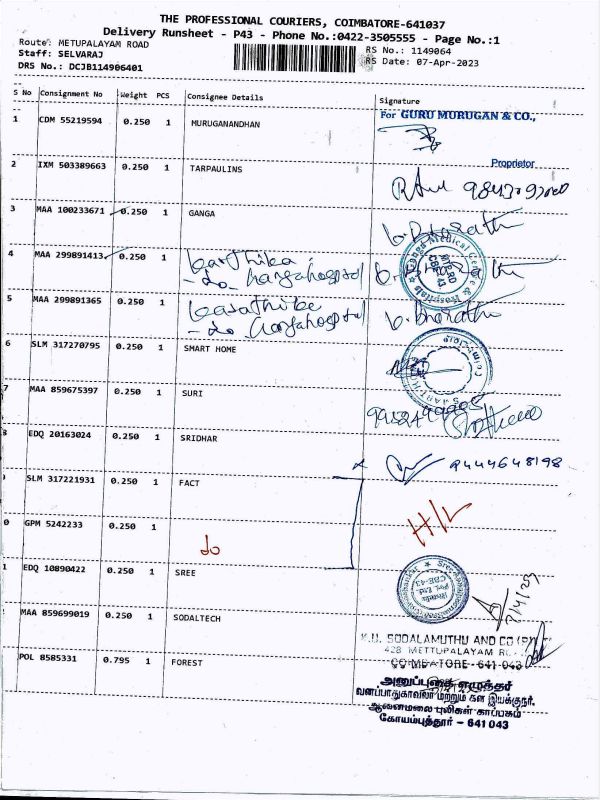 THE PROFESSIONAL COURIERS, COIMBATORE-641037
Delivery Runsheet - P43 - Phone No.:0422-3505555 - Page No.:1
Route: METUPALAYAM ROAD
Staff: SELVARAJ
DRS No.: DCJB114906401
RS No.: 1149064
RS Date: 07-Apr-2023
S No Consignment No Weight PCS Consignee Details Signature
1 CDM 55219594 0.250 1 MURUGANANDHAN
For GURU MURUGAN & CO.,
Proprietor
2 IXM 503389663 0.250 1 TARPAULINS
3 MAA 100233671 0.250 1 GANGA
b. Bharathi
4 MAA 299891413 0.250 1 Karthika
- do - Gangahospital
5 MAA 299891365 0.250 1
- do Gangahospital b. Bharathi
6 SLM 317270795 0.250 1 SMART HOME
7 MAA 859675397 0.250 1 SURI
8 EDQ 20163024 0.250 1 SRIDHAR
9444648198
SLM 317221931 0.250 1 FACT
H/L
0 GPM 5242233 0.250 1
do
1 EDQ 10890422 0.250 1 SREE
CBE-43
MAA 859699019 0.250 1 SODALTECH
K.U. SODALAMUTHU AND CO (P)
428 METTUPALAYAM
COIMBATORE - 641 043
POL 8585331 0.795 1 FOREST
அனுப்புகை எழுத்தர்
வனப்பாதுகாவலர் மற்றும் கள இயக்குநர்.
ஆனைமலை புலிகள் காப்பகம்
கோயம்புத்தூர் – 641 043